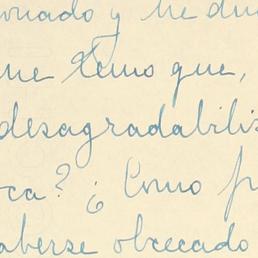 y he
me temo que,
desagradabilis
ca? ¿Como f
aberse obcecado